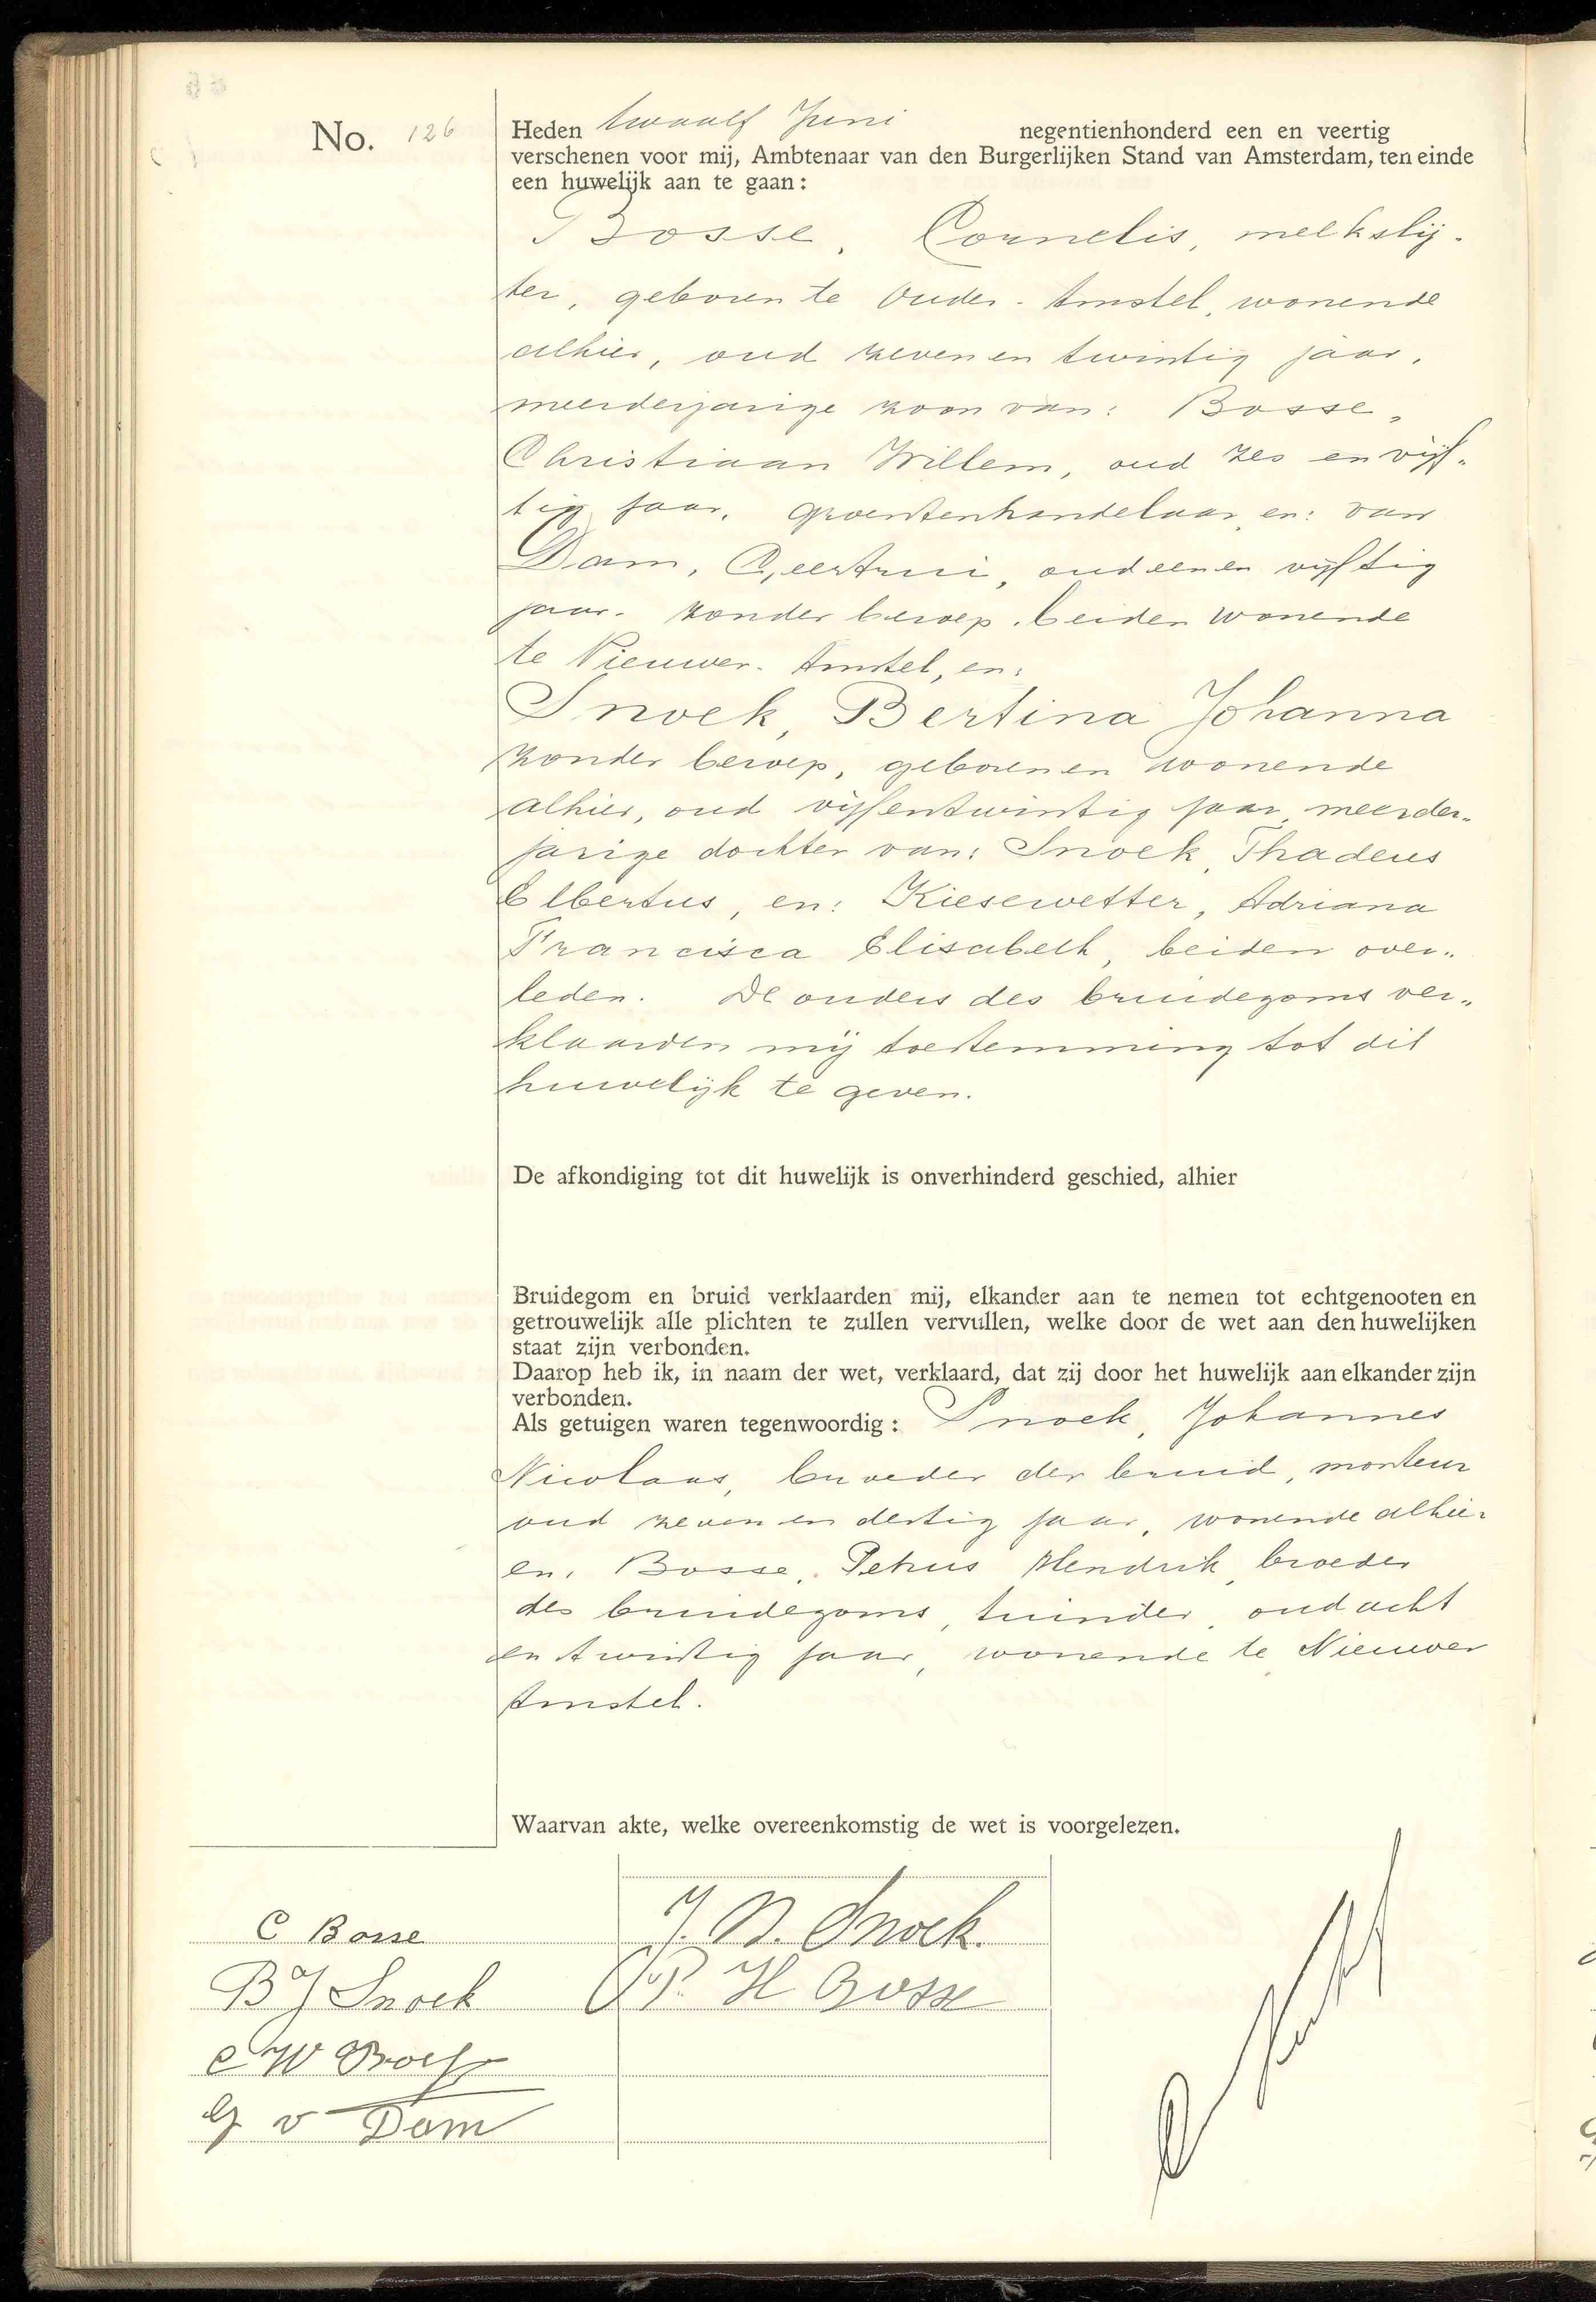 No. 126
Heden twaalf Juni negentienhonderd een en veertig
verschenen voor mij, Ambtenaar van den Burgerlijken Stand van Amsterdam, ten einde
een huwelijk aan te gaan:
Bosse, Cornelis, melkslij-
ter, geboren te Ouder-Amstel, wonende
alhier, oud zeven en twintig jaar,
meerderjarige zoon van: Bosse,
Christiaan Willem, oud zes en vijf„
tig jaar, groentenhandelaar, en: van
Dam, Geertrui, oud een en vijftig
jaar, zonder beroep, beiden wonende
te Nieuwer-Amstel, en:
Snoek, Bertina Johanna
zonder beroep, geboren en wonende
alhier, oud vijfentwintig jaar, meerder„
jarige dochter van: Snoek, Thadeus
Elbertus, en: Kiesewetter, Adriana
Francisca Elisabeth, beiden over„
leden. De ouders des bruidegoms ver„
klaarden mij toestemming tot dit
huwelijk te geven.
De afkondiging tot dit huwelijk is onverhinderd geschied, alhier
Bruidegom en bruid verklaarden mij, elkander aan te nemen tot echtgenooten en
getrouwelijk alle plichten te zullen vervullen, welke door de wet aan den huwelijken
staat zijn verbonden.
Daarop heb ik, in naam der wet, verklaard, dat zij door het huwelijk aan elkander zijn
verbonden.
Als getuigen waren tegenwoordig: Snoek, Johannes
Nicolaas, broeder der bruid, monteur
oud zeven en dertig jaar, wonende alhier
en, Bosse, Petrus Hendrik, broeder
des bruidegoms, tuinder, oud acht
en twintig jaar, wonende te Nieuwer
Amstel.
Waarvan akte, welke overeenkomstig de wet is voorgelezen.
C Bosse
J. N. Snoek.
B J Snoek
P. H Bosse
C W Bosse
G v Dam